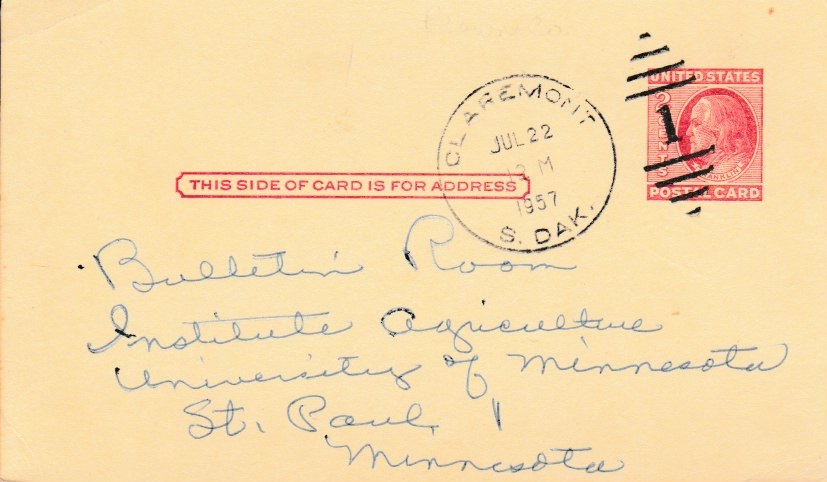 UNITED STATES
2 CENTS
FRANKLIN
POSTAL CARD
1
CLAREMONT
JUL 22
12 M
1957
S. DAK.
THIS SIDE OF CARD IS FOR ADDRESS
Bulletin Room
Institute Agriculture
University of Minnesota
St. Paul, 11
Minnesota